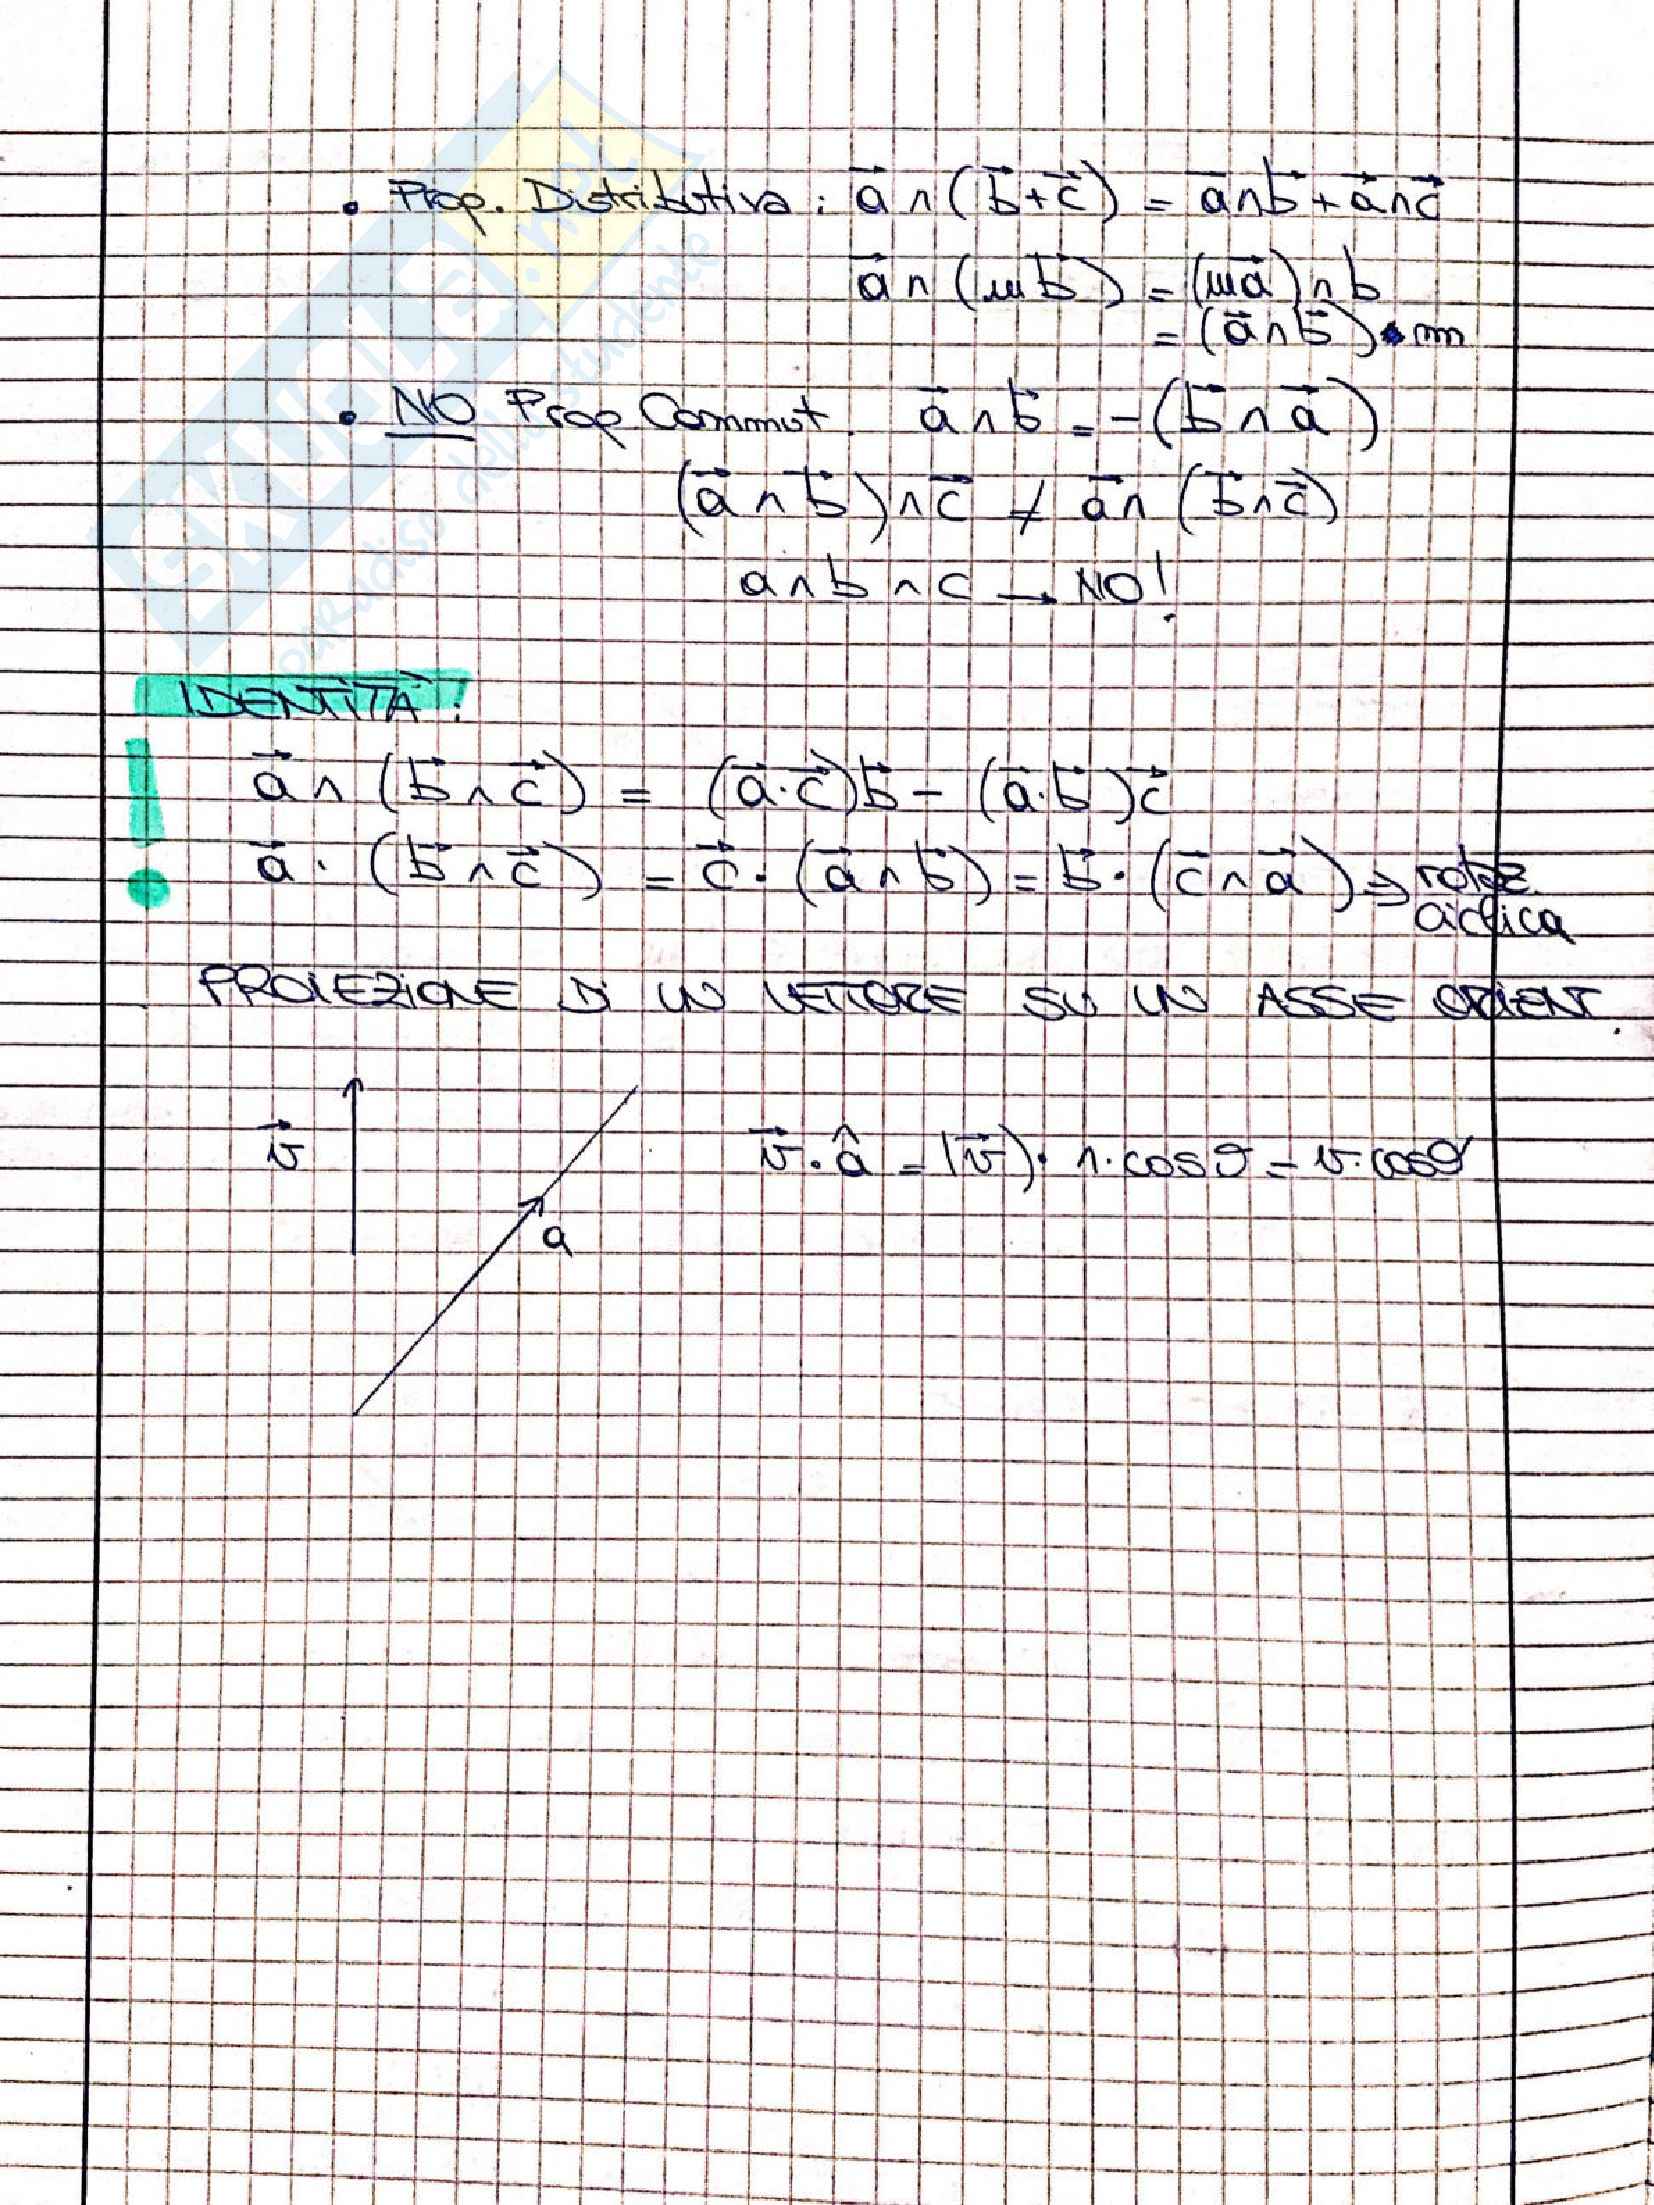 • Prop. Distributiva : a⃗ ∧ (b⃗ + c⃗) = a⃗ ∧ b⃗ + a⃗ ∧ c⃗
a⃗ ∧ (m b⃗) = (m a⃗) ∧ b
= (a⃗ ∧ b⃗) • m
• NO Prop Commut. a⃗ ∧ b⃗ = -(b⃗ ∧ a⃗)
(a⃗ ∧ b⃗) ∧ c⃗ ≠ a⃗ ∧ (b⃗ ∧ c⃗)
a ∧ b ∧ c → NO!
IDENTITÀ :
! a⃗ ∧ (b⃗ ∧ c⃗) = (a⃗ · c⃗) b⃗ - (a⃗ · b⃗) c⃗
a⃗ · (b⃗ ∧ c⃗) = c⃗ · (a⃗ ∧ b⃗) = b⃗ · (c⃗ ∧ a⃗) ⇒ rotaz.
ciclica
PROIEZIONE DI UN VETTORE SU UN ASSE ORIENT.
v⃗
v⃗ · â = |v⃗| · 1 · cos ϑ = v · cos ϑ
a
SKUOLA.net
paradiso dello studente